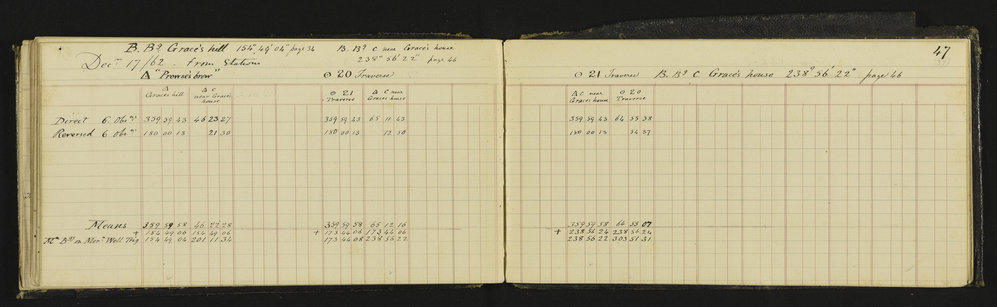 B. Bg Grace's hill 154° 49' 04" page 34
B. Bg C near Grace's house
Decr 17/62 - from Stations
238° 56' 22" page 46
47
Δ "Prowse's brow"
⊙ 20 Traverse
⊙ 21 Traverse B. Bg C Grace's house 238° 56' 22" page 46
Δ Grace's hill
Δ C near Grace's house
⊙ 21 Traverse
Δ C near Grace's house
Δ C near Grace's house
⊙ 20 Traverse
Direct 6 Obsns 359 59 43 46 23 27 359 59 43 65 11 43 359 59 43 64 55 38
Reversed 6 Obsns 180 00 13 21 30 180 00 13 12 50 180 00 13 54 37
Means 359 59 58 46 22 28 359 59 58 65 12 16 359 59 58 64 55 07
+ 154 49 06 154 49 06 + 173 44 06 173 44 06 + 238 56 24 238 56 24
Mn Bg on Merr Well Trig 154 49 04 201 11 34 173 44 08 238 56 22 238 56 22 303 51 31